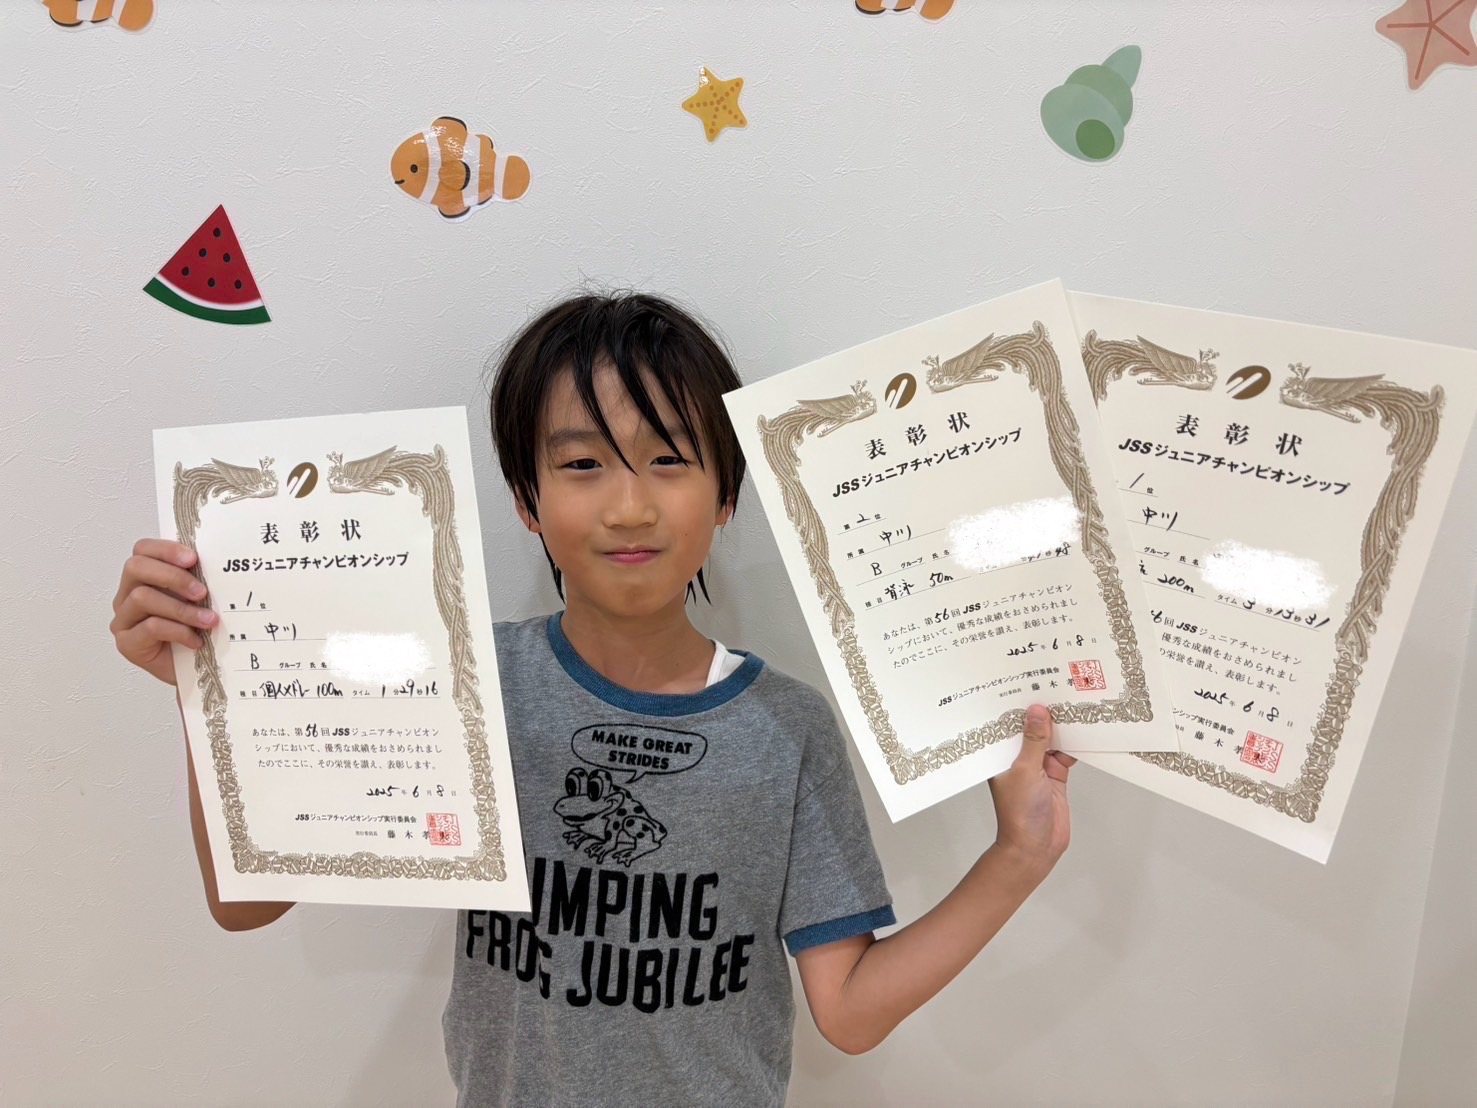 表彰状
JSSジュニアチャンピオンシップ
第 1 位
所属 中川
B グループ 氏名
種目 個人メドレー 100m タイム 1分29秒16
あなたは、第56回JSSジュニアチャンピオン
シップにおいて、優秀な成績をおさめられまし
たのでここに、その栄誉を讃え、表彰します。
2025年6月8日
JSSジュニアチャンピオンシップ実行委員会
実行委員長 藤木孝夫
MAKE GREAT
STRIDES
UMPING
FROG JUBILEE
表彰状
JSSジュニアチャンピオンシップ
第 2 位
所属 中川
B グループ 氏名
種目 背泳 50m
秒48
あなたは、第56回JSSジュニアチャンピオン
シップにおいて、優秀な成績をおさめられまし
たのでここに、その栄誉を讃え、表彰します。
2025年6月8日
JSSジュニアチャンピオンシップ実行委員会
実行委員長 藤木孝夫
表彰状
JSSジュニアチャンピオンシップ
1 位
中川
グループ 氏名
200m タイム 3分13秒31
6回JSSジュニアチャンピオン
優秀な成績をおさめられまし
の栄誉を讃え、表彰します。
2025年6月8日
ンシップ実行委員会
藤木孝夫